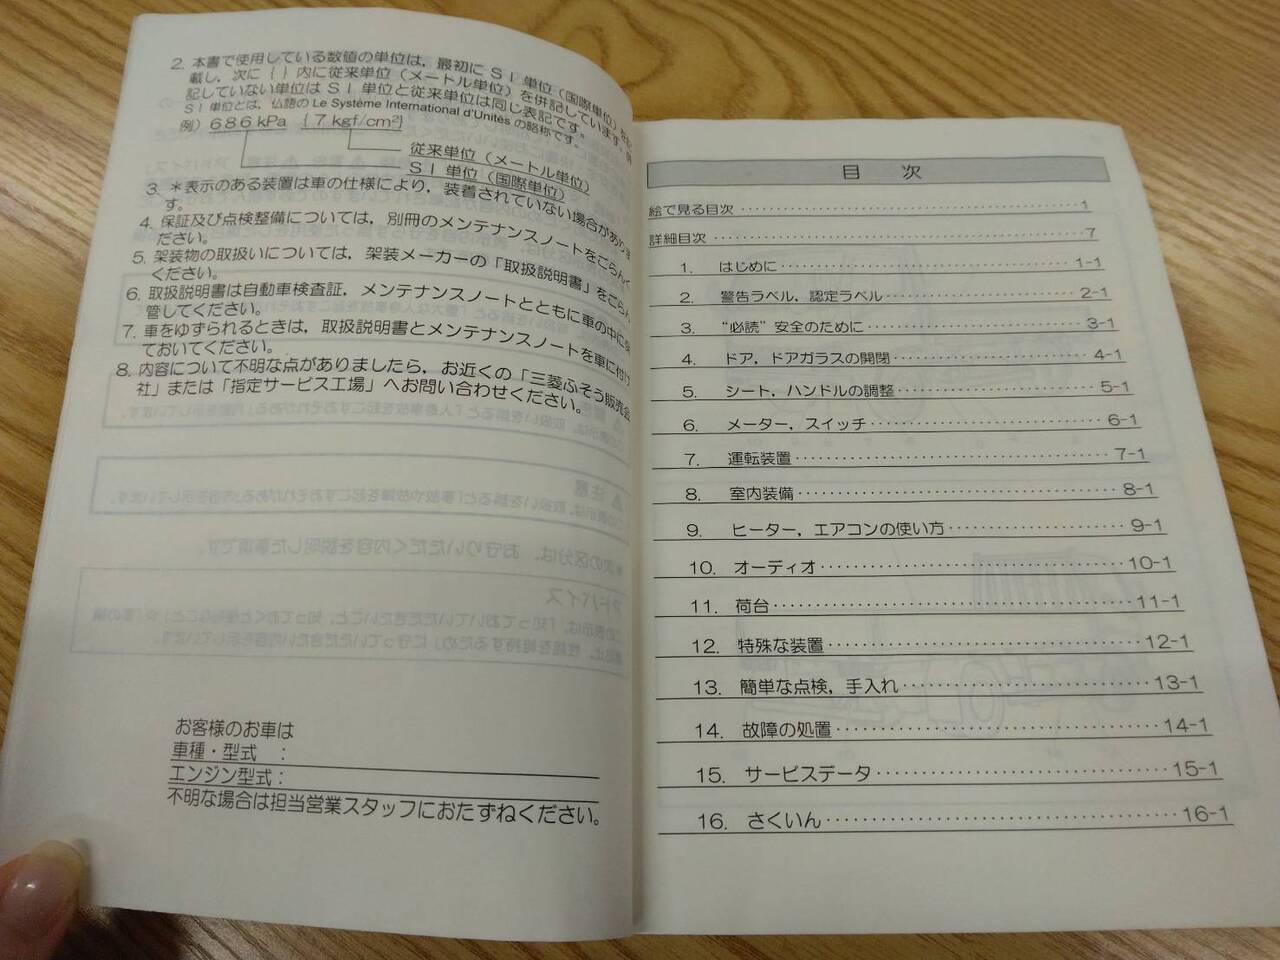 2. 本書で使用している数値の単位は，最初にＳＩ単位（国際単位）を
載し，次に｛ ｝内に従来単位（メートル単位）を併記しています。
記していない単位はＳＩ単位と従来単位は同じ表記です。
ＳＩ単位とは，仏語の Le Systéme International d'Unités の略称です。
例）686 kPa ｛7 kgf/cm²｝
従来単位（メートル単位）
ＳＩ単位（国際単位）
3. ＊表示のある装置は車の仕様により，装着されていない場合がありま
す。
4. 保証及び点検整備については，別冊のメンテナンスノートをごらんく
ださい。
5. 架装物の取扱いについては，架装メーカーの「取扱説明書」をごらん
ください。
6. 取扱説明書は自動車検査証，メンテナンスノートとともに車の中に
管してください。
7. 車をゆずられるときは，取扱説明書とメンテナンスノートを車に付け
ておいてください。
8. 内容について不明な点がありましたら，お近くの「三菱ふそう販売会
社」または「指定サービス工場」へお問い合わせください。
お客様のお車は
車種・型式　：
エンジン型式：
不明な場合は担当営業スタッフにおたずねください。
目　次
絵で見る目次 ················ 1
詳細目次 ················ 7
1. はじめに ················ 1-1
2. 警告ラベル，認定ラベル ················ 2-1
3. “必読”安全のために ················ 3-1
4. ドア，ドアガラスの開閉 ················ 4-1
5. シート，ハンドルの調整 ················ 5-1
6. メーター，スイッチ ················ 6-1
7. 運転装置 ················ 7-1
8. 室内装備 ················ 8-1
9. ヒーター，エアコンの使い方 ················ 9-1
10. オーディオ ················ 10-1
11. 荷台 ················ 11-1
12. 特殊な装置 ················ 12-1
13. 簡単な点検，手入れ ················ 13-1
14. 故障の処置 ················ 14-1
15. サービスデータ ················ 15-1
16. さくいん ················ 16-1